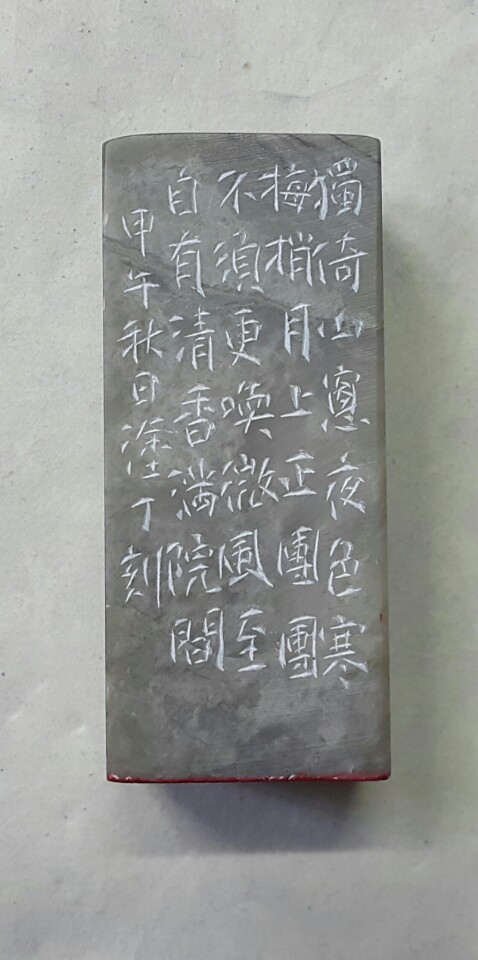 獨倚山窻夜色寒
梅梢月上正團團
不須更喚微風至
自有清香满院間
甲午秋日涂丁刻